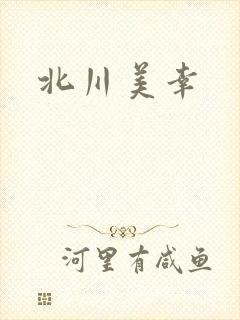 北川美幸
河里有咸鱼